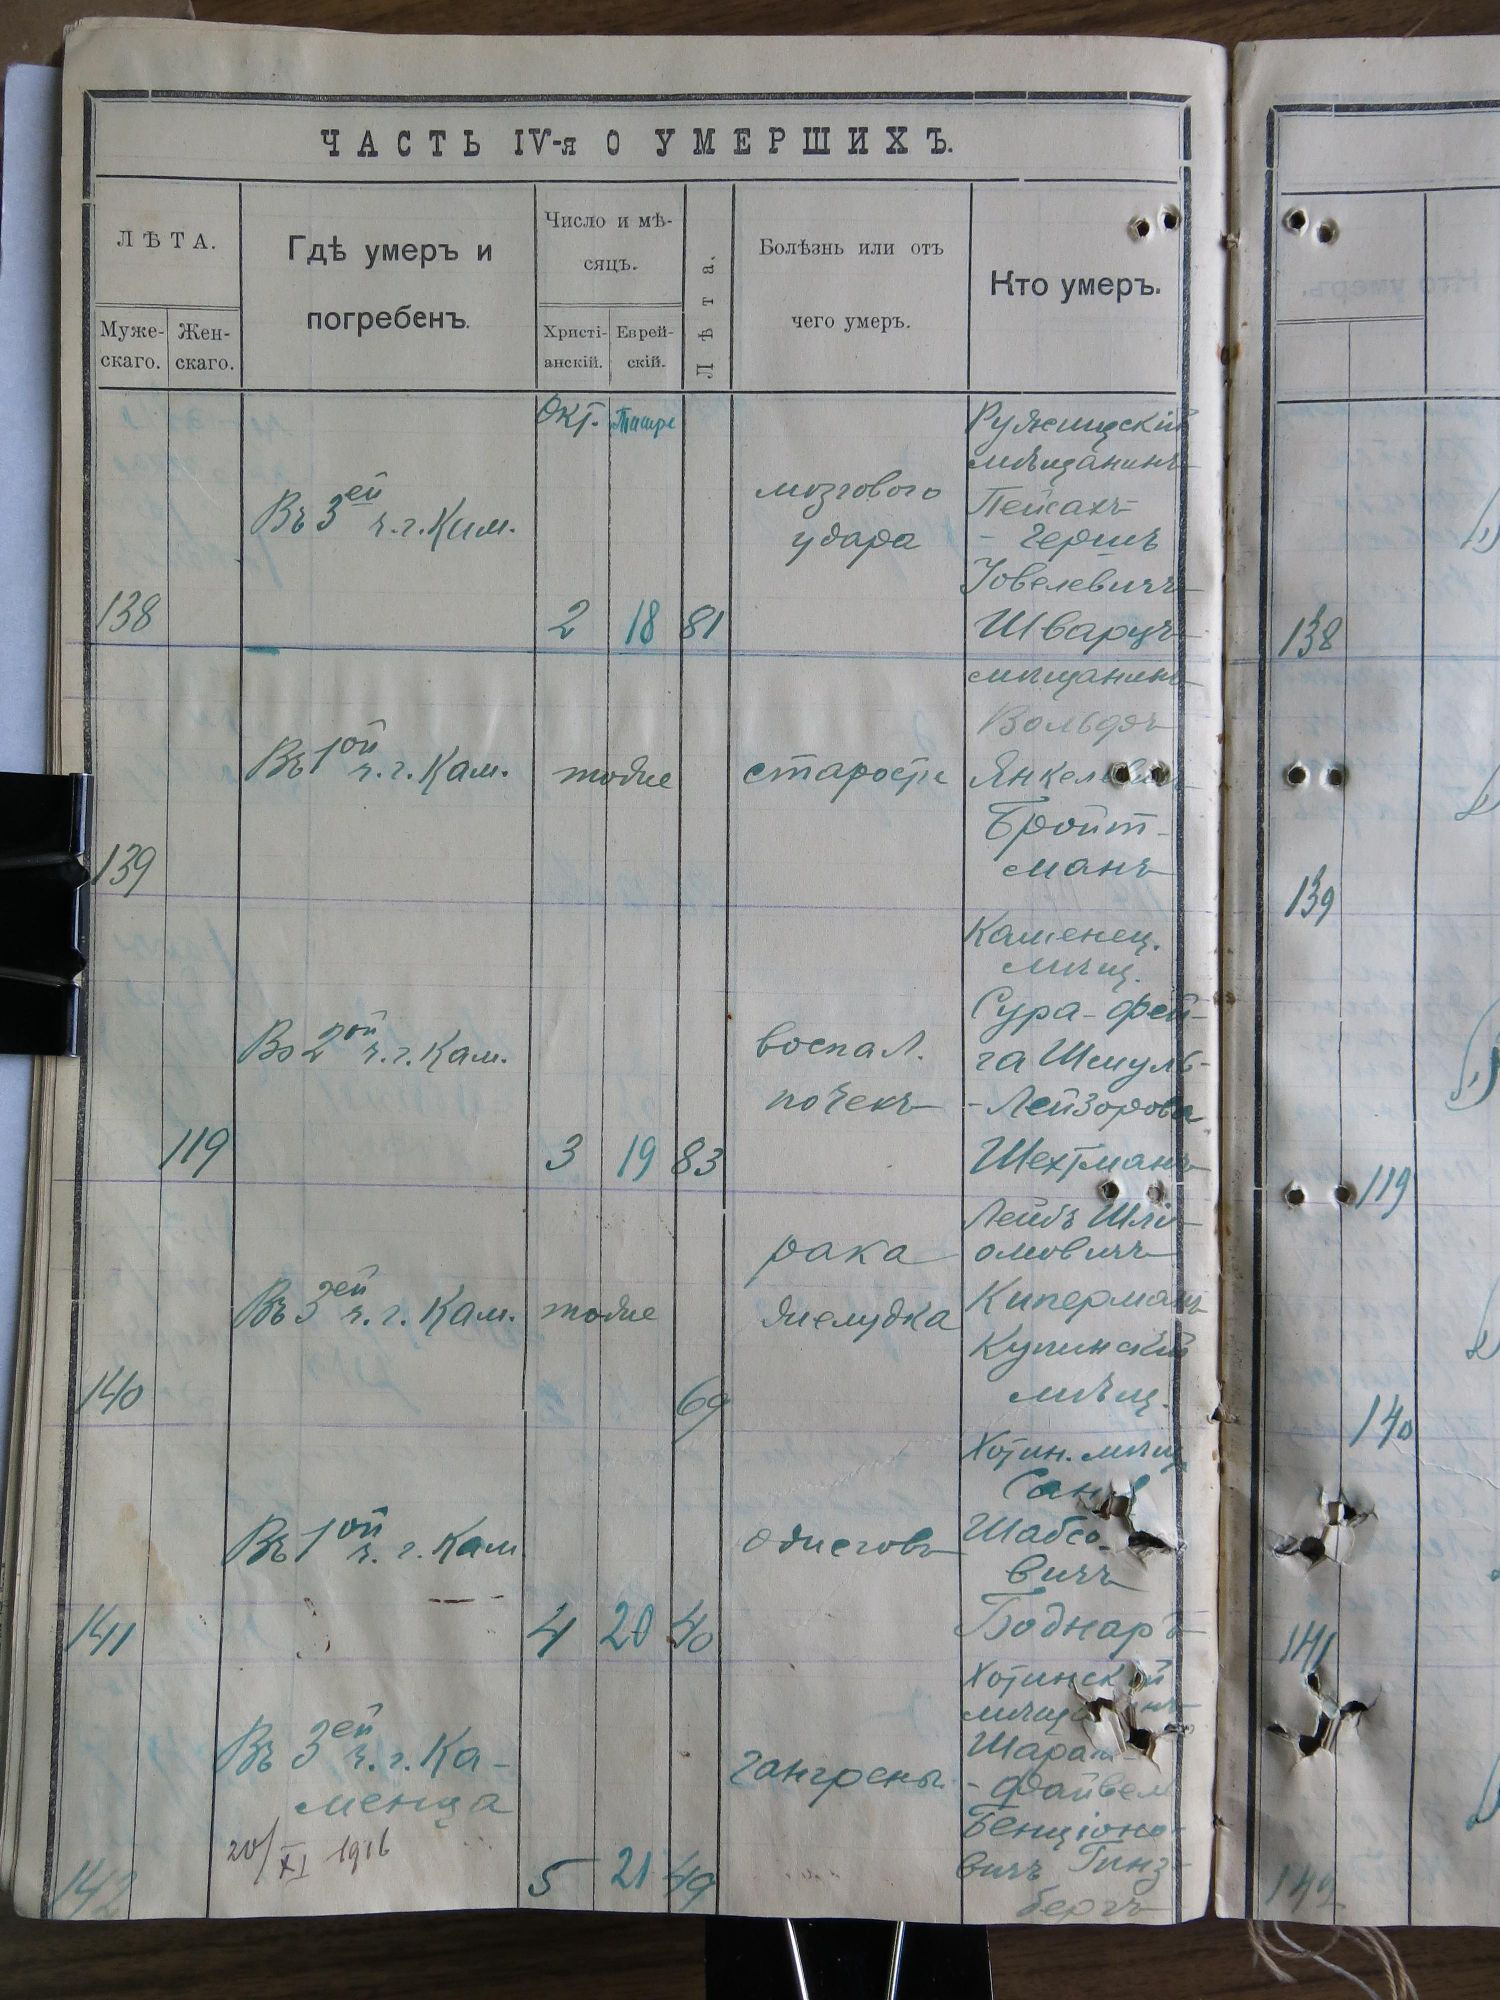 ЧАСТЬ IV-я О УМЕРШИХЪ.
ЛѢТА.
Муже-
скаго.
Жен-
скаго.
Гдѣ умеръ и
погребенъ.
Число и мѣ-
сяцъ.
Христі-
анскій.
Еврей-
скій.
Лѣта.
Болѣзнь или отъ
чего умеръ.
Кто умеръ.
Окт.
138
Въ 3ей ч. г. Кам.
2
18
81
мозгового
удара
мѣщанинъ
Пейсахъ-
- Гершъ
Іовелевичъ
Шварцъ
139
Въ 1ой ч. г. Кам.
тоже
старости
мѣщанинъ
Вольфъ
Бройт-
манъ
119
Во 2ой ч. г. Кам.
3
19
83
воспал.
почекъ
Каменец.
мѣщ.
Сура-Фей-
га Шмуль-
- Лейзорова
Шехтманъ
140
Въ 3ей ч. г. Кам.
тоже
69
рака
желудка
Лейбъ Шлі-
омовичъ
Киперманъ
Купинскій
мѣщ.
141
Въ 1ой ч. г. Кам
4
20
40
ожогов
Хотин. мѣщ
Шабсо-
вичъ
Боднаръ
142
Въ 3ей ч. г. Ка-
менца
20/XI 1916
5
21
49
гангрены
Хотинскій
- Файвел
Бенціоно-
вичъ Гинз-
бергъ
138
139
119
140
141
142